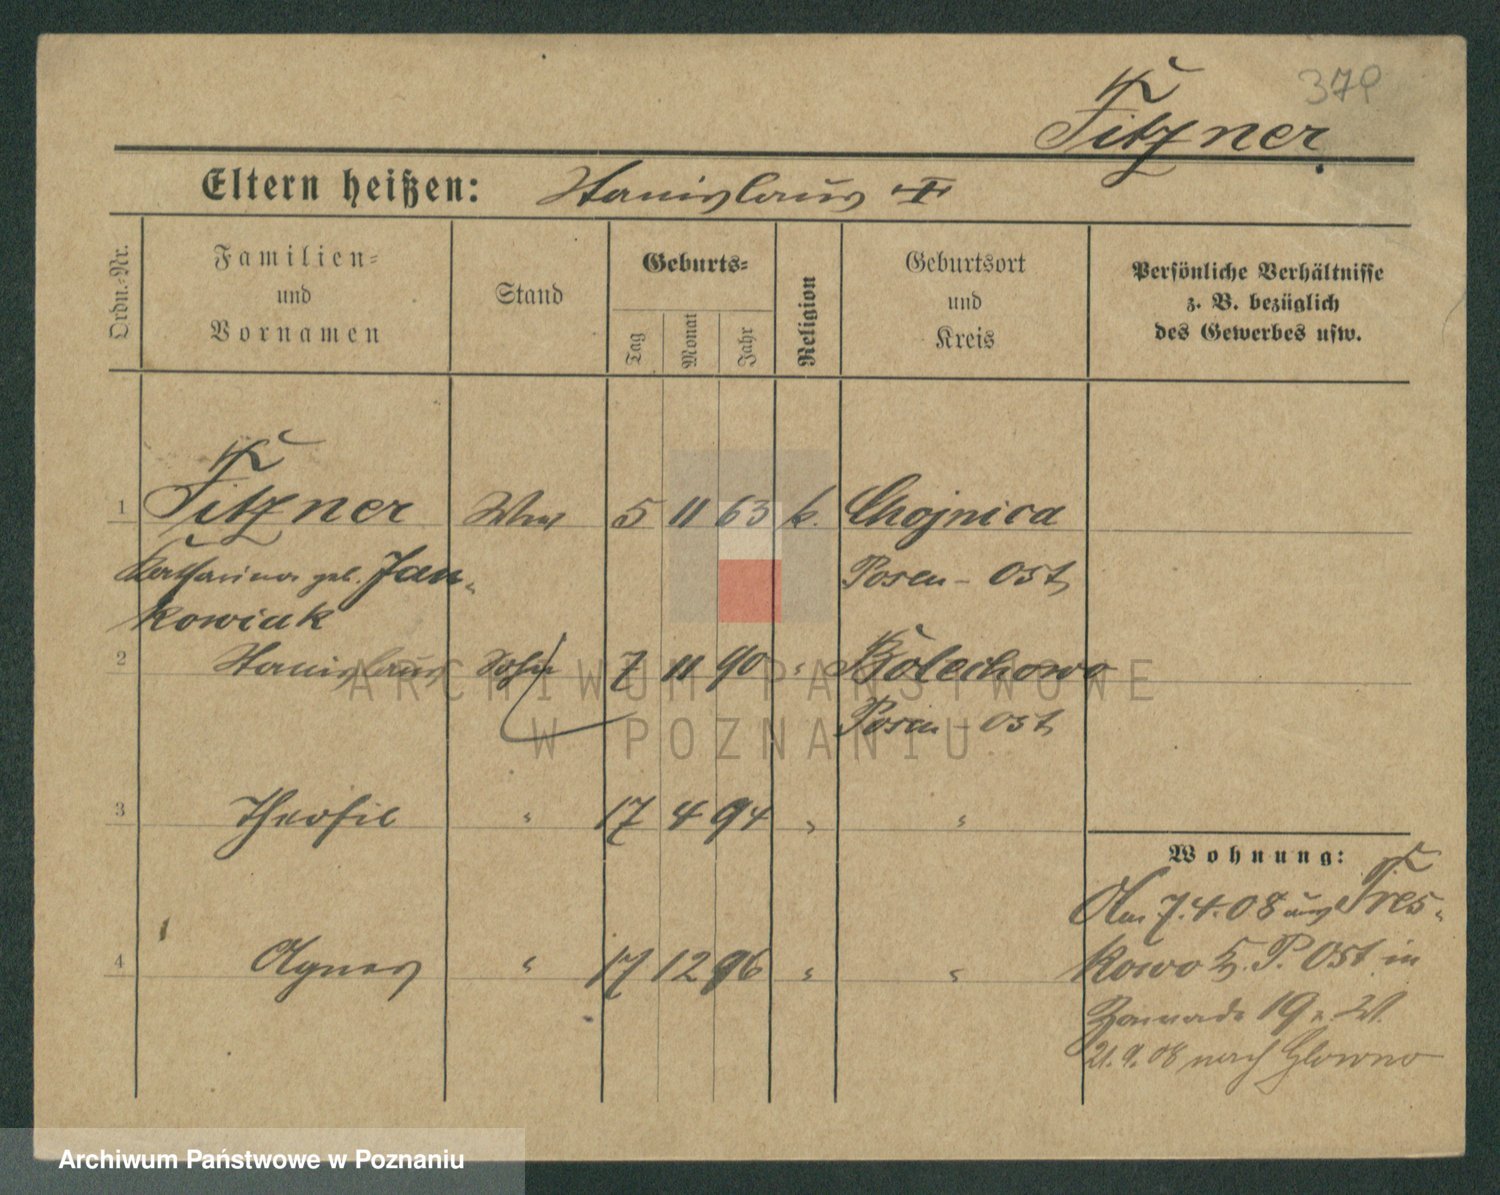 379
Fitzner
Eltern heißen: Stanislaus I
Ordn.-Nr.
Familien-
und
Vornamen
Stand
Geburts-
Tag
Monat
Jahr
Religion
Geburtsort
und
Kreis
Persönliche Verhältnisse
z. B. bezüglich
des Gewerbes usw.
1 Fitzner Wwe 5 11 63 k. Chojnica
Katharina geb. Jan-
Posen - Ost
kowiak
2 Stanislaus Sohn 7 11 90 " Bolechowo
Posen - Ost
3 Theofil " 17 4 94 " "
Wohnung:
Am 7.4.08 aus Tres-
4 Agnes " 17 12 96 " "
kowo K. P. Ost in
19
21.9.08 nach Glowno
ARCHIWUM PAŃSTWOWE
W POZNANIU
Archiwum Państwowe w Poznaniu